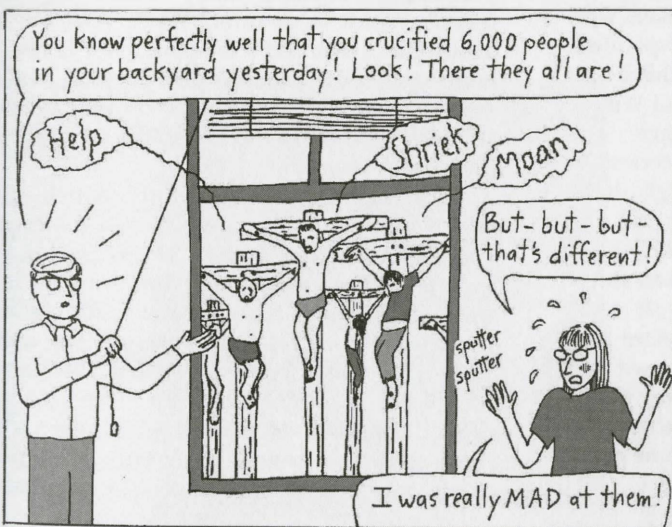 You know perfectly well that you crucified 6,000 people
in your backyard yesterday! Look! There they all are!
Help
Shriek
Moan
But-but-but-
that's different!
sputter
sputter
I was really MAD at them!